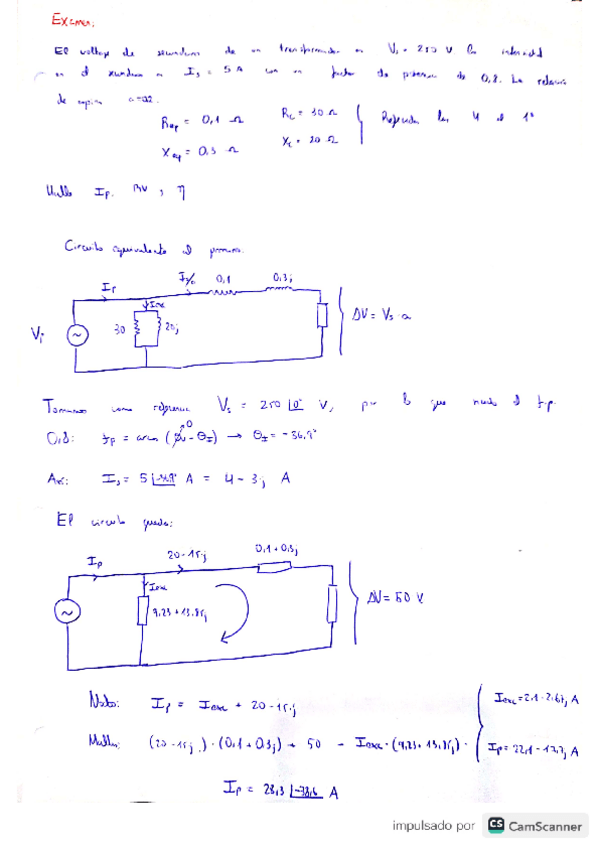 Examen:
El voltaje de secundario de un transformador es Vs = 250 V la intensidad
en el secundario es Is = 5 A con un factor de potencia de 0,8. La relación
de espiras a=0.2.
Req = 0,1 Ω
Rc = 30 Ω
Xc = 20 Ω
Xeq = 0,3 Ω
Referidas los 4 al 1º
Halla Ip, RV, η
Circuito equivalente al primario.
Ip
Is/a
0,1
0,3j
Iexc
Vi
30
20j
ΔV = Vs·a
Tomamos como referencia Vs = 250 |0° V, por lo que siendo el f.p.
0,8:
Así: Is = 5 |-36,9° A = 4 - 3j A
El circuito queda:
Ip
20-15j
0,1+0,3j
Iexc
9,23+13,85j
ΔV = 50 V
Nodo: Ip = Iexc + 20-15j
Iexc = 2,1-2,67j A
Mallas: (20-15j)·(0,1+0,3j) + 50 - Iexc·(9,23+13,85j)
Ip = 22,1-17,7j A
Ip = 28,3 |-38,6 A
impulsado por CS CamScanner